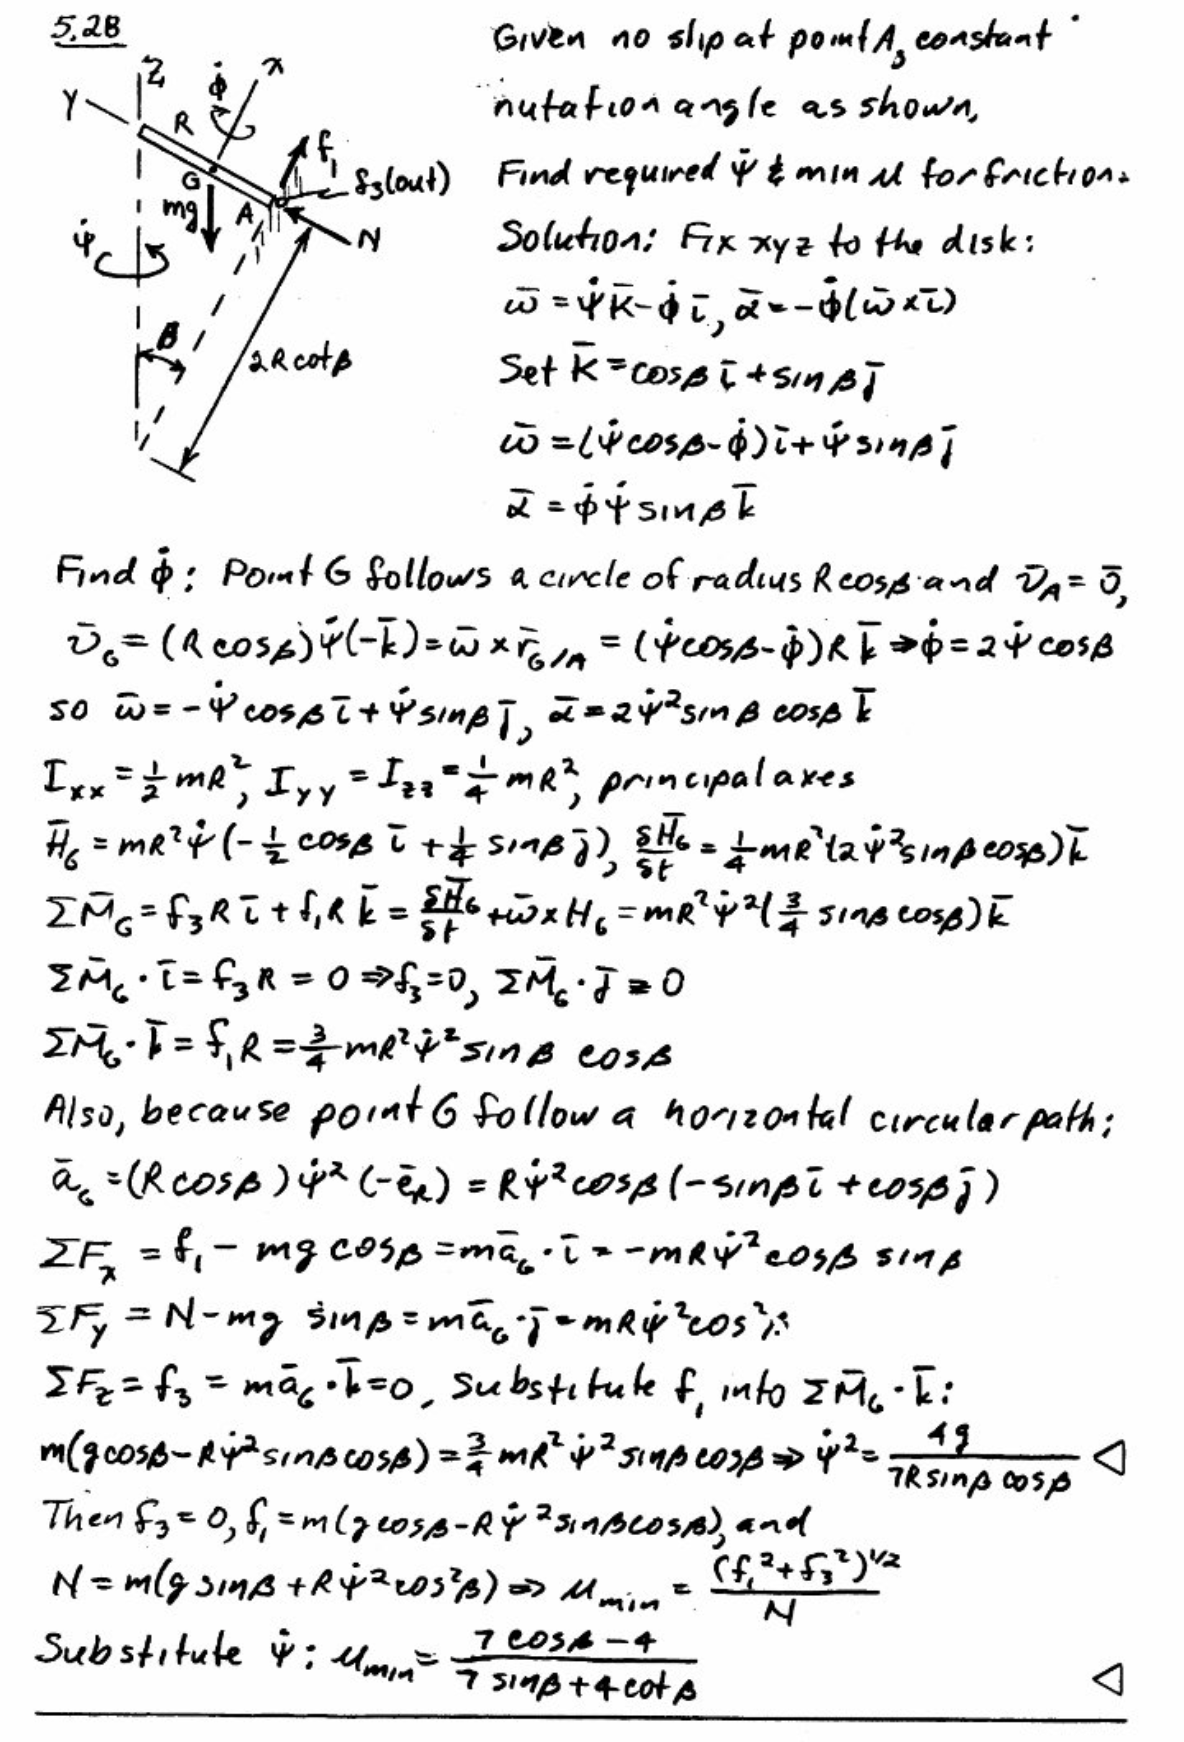 5.28
Given no slip at point A, constant
nutation angle as shown.
Find required ψ̇ & min μ for friction.
Solution: Fix xyz to the disk:
ω̄ = ψ̇K̄ - φ̇ ī, ᾱ = -φ̇(ω̄ × ī)
Set K̄ = cosβ ī + sinβ j̄
ω̄ = (ψ̇cosβ - φ̇) ī + ψ̇ sinβ j̄
ᾱ = φ̇ ψ̇ sinβ k̄
Z
φ̇
x
y
R
f₁
G
f₃(out)
mg
A
N
ψ̇
β
2Rcotβ
Find φ̇: Point G follows a circle of radius Rcosβ and v̄_A = 0̄,
v̄_G = (Rcosβ)ψ̇(-k̄) = ω̄ × r̄_G/A = (ψ̇cosβ - φ̇)R k̄ ⇒ φ̇ = 2ψ̇ cosβ
so ω̄ = -ψ̇ cosβ ī + ψ̇ sinβ j̄, ᾱ = 2ψ̇² sinβ cosβ k̄
I_xx = 1/2 mR², I_yy = I_zz = 1/4 mR², principal axes
H̄_G = mR²ψ̇(-1/2 cosβ ī + 1/4 sinβ j̄), δH̄_G/δt = 1/4 mR²(2ψ̇² sinβ cosβ) k̄
ΣM̄_G = f₃R ī + f₁R k̄ = δH̄_G/δt + ω̄ × H_G = mR²ψ̇²(3/4 sinβ cosβ) k̄
ΣM̄_G · ī = f₃R = 0 ⇒ f₃ = 0, ΣM̄_G · j̄ = 0
ΣM̄_G · k̄ = f₁R = 3/4 mR²ψ̇² sinβ cosβ
Also, because point G follow a horizontal circular path;
ā_G = (Rcosβ)ψ̇²(-ē_R) = Rψ̇² cosβ(-sinβ ī + cosβ j̄)
ΣF_x = f₁ - mg cosβ = mā_G · ī = -mRψ̇² cosβ sinβ
ΣF_y = N - mg sinβ = mā_G · j̄ = mRψ̇² cos²β
ΣF_z = f₃ = mā_G · k̄ = 0, Substitute f₁ into ΣM̄_G · k̄:
m(gcosβ - Rψ̇² sinβ cosβ) = 3/4 mR² ψ̇² sinβ cosβ ⇒ ψ̇² = 4g/(7R sinβ cosβ) ◁
Then f₃ = 0, f₁ = m(gcosβ - Rψ̇² sinβ cosβ), and
N = m(g sinβ + Rψ̇² cos²β) ⇒ μ_min = (f₁² + f₃²)^1/2 / N
Substitute ψ̇: μ_min = (7 cosβ - 4)/(7 sinβ + 4 cotβ) ◁